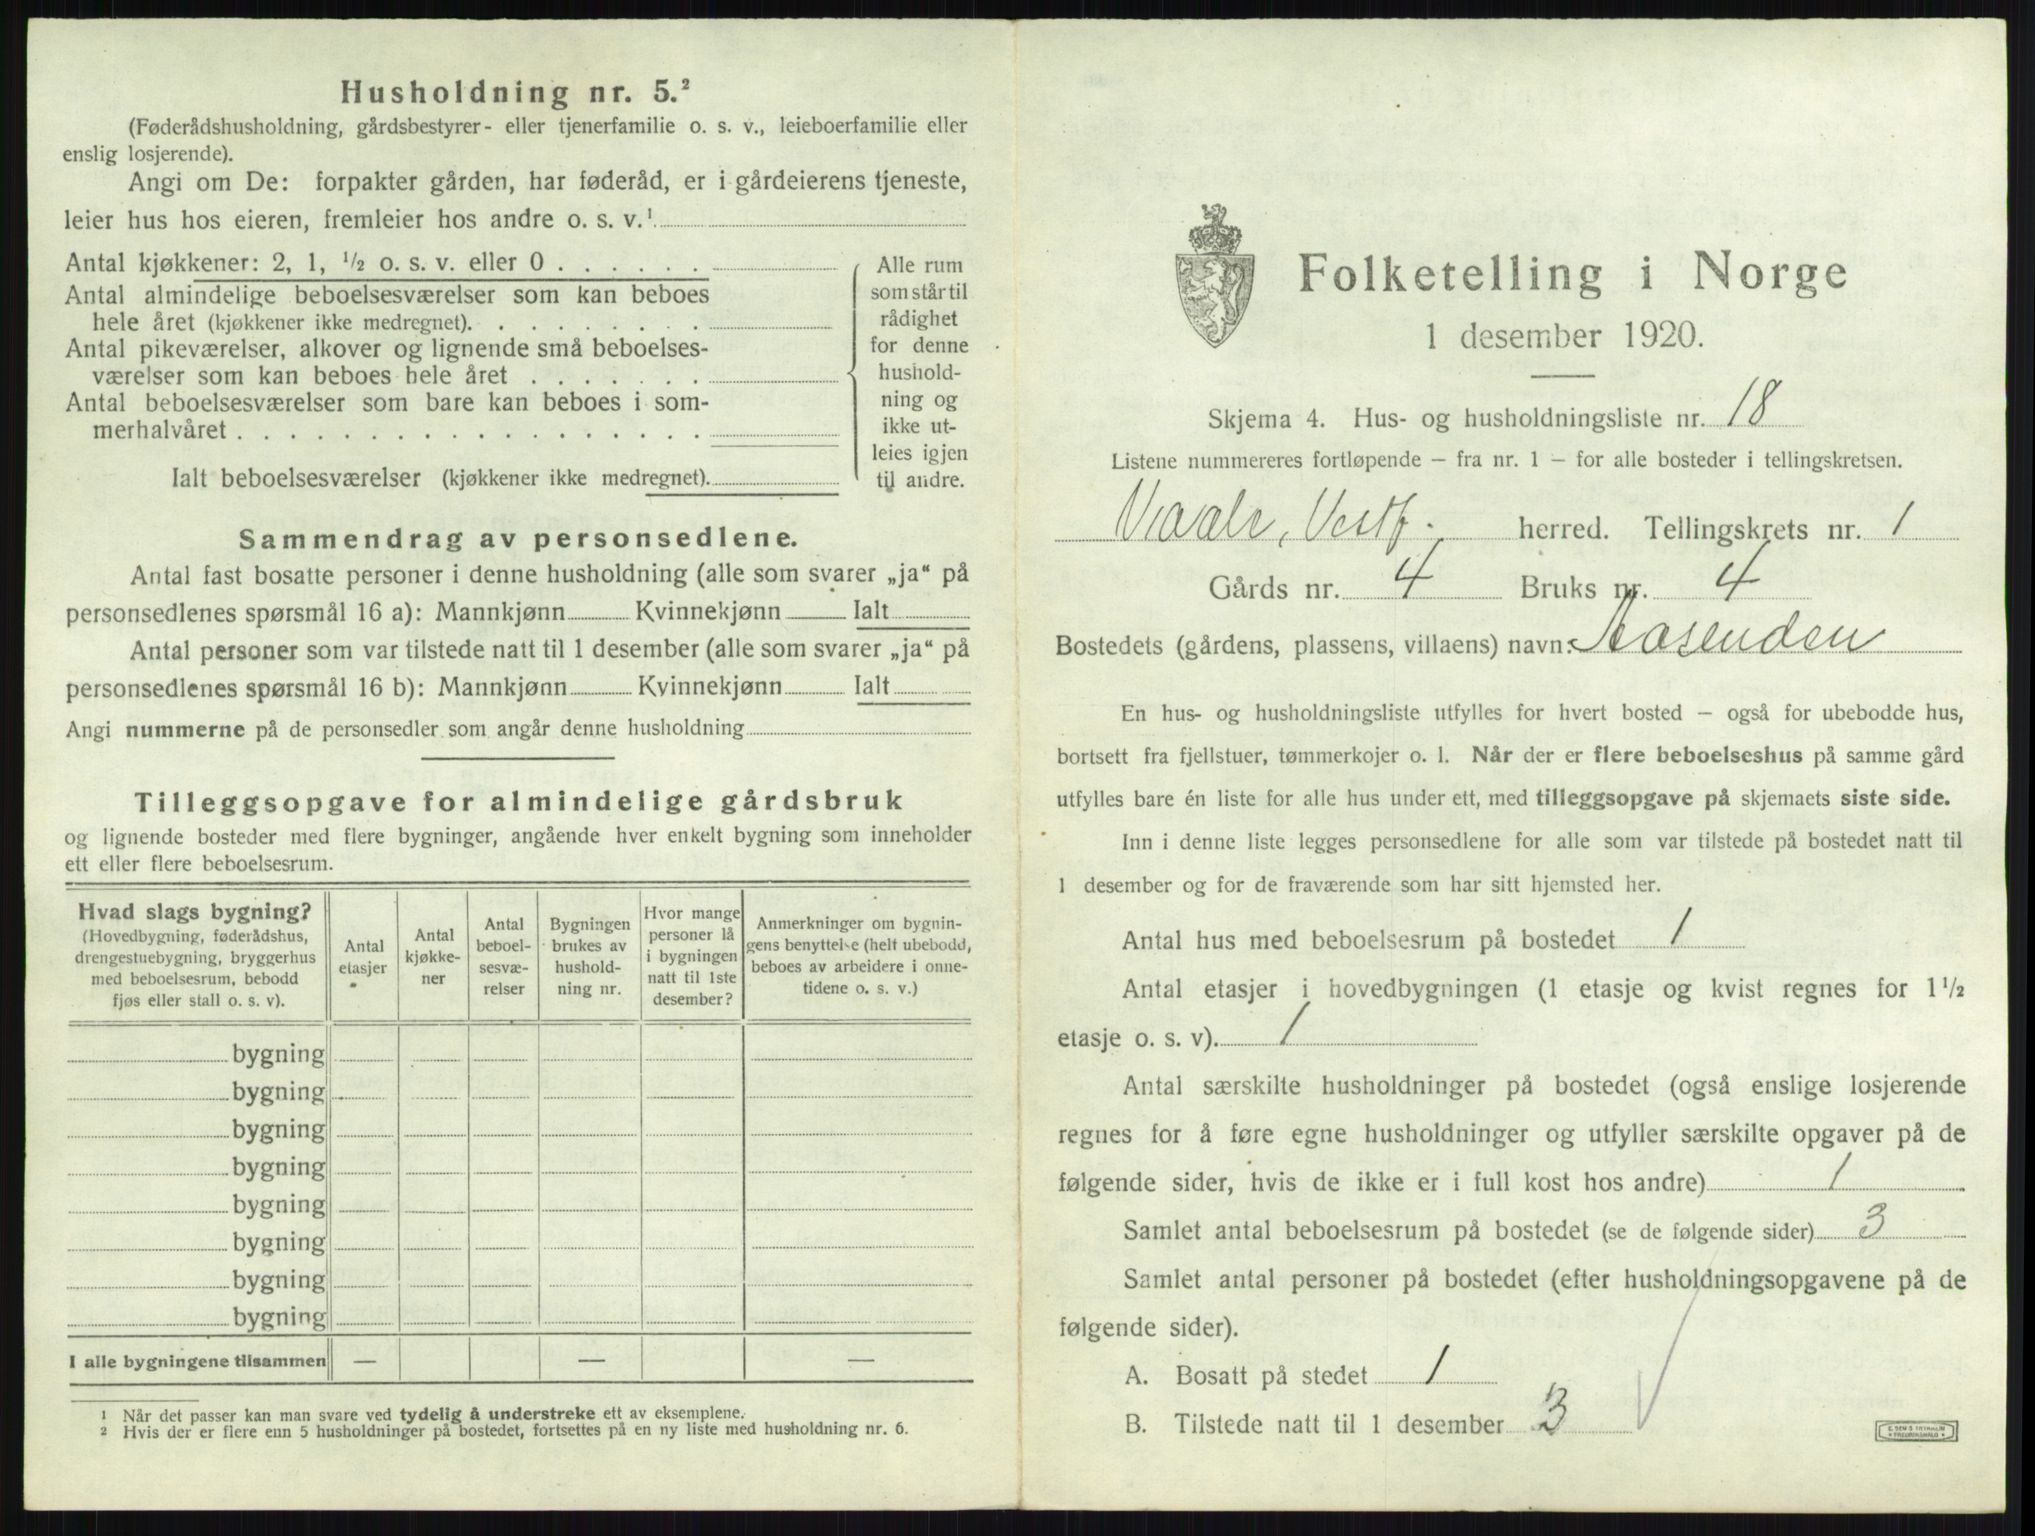 Husholdning nr. 5.²
(Føderådshusholdning, gårdsbestyrer- eller tjenerfamilie o. s. v., leieboerfamilie eller
enslig losjerende).
Angi om De: forpakter gården, har føderåd, er i gårdeierens tjeneste,
leier hus hos eieren, fremleier hos andre o. s. v.¹
Antal kjøkkener: 2, 1, ½ o. s. v. eller 0 . . . . . .
Antal almindelige beboelsesværelser som kan beboes
hele året (kjøkkener ikke medregnet). . . . . . . . .
Antal pikeværelser, alkover og lignende små beboelses-
værelser som kan beboes hele året . . . . . . .
Antal beboelsesværelser som bare kan beboes i som-
merhalvåret . . . . . . . . . . . . . . . . . .
Ialt beboelsesværelser (kjøkkener ikke medregnet).
Alle rum
som står til
rådighet
for denne
hushold-
ning og
ikke ut-
leies igjen
til andre.
Sammendrag av personsedlene.
Antal fast bosatte personer i denne husholdning (alle som svarer „ja“ på
personsedlenes spørsmål 16 a): Mannkjønn Kvinnekjønn Ialt
Antal personer som var tilstede natt til 1 desember (alle som svarer „ja“ på
personsedlenes spørsmål 16 b): Mannkjønn Kvinnekjønn Ialt
Angi nummerne på de personsedler som angår denne husholdning
Tilleggsopgave for almindelige gårdsbruk
og lignende bosteder med flere bygninger, angående hver enkelt bygning som inneholder
ett eller flere beboelsesrum.
Hvad slags bygning?
(Hovedbygning, føderådshus,
drengestuebygning, bryggerhus
med beboelsesrum, bebodd
fjøs eller stall o. s. v).
Antal
etasjer
Antal
kjøkke-
ner
Antal
beboel-
sesvæ-
relser
Bygningen
brukes av
hushold-
ning nr.
Hvor mange
personer lå
i bygningen
natt til 1ste
desember?
Anmerkninger om bygnin-
gens benyttelse (helt ubebodd,
beboes av arbeidere i onne-
tidene o. s. v.)
bygning
bygning
bygning
bygning
bygning
bygning
bygning
bygning
I alle bygningene tilsammen — — —
¹ Når det passer kan man svare ved tydelig å understreke ett av eksemplene.
² Hvis der er flere enn 5 husholdninger på bostedet, fortsettes på en ny liste med husholdning nr. 6.
Folketelling i Norge
1 desember 1920.
Skjema 4. Hus- og husholdningsliste nr. 18
Listene nummereres fortløpende – fra nr. 1 – for alle bosteder i tellingskretsen.
Vaale, Vestf. herred. Tellingskrets nr. 1
Gårds nr. 4 Bruks nr. 4
Bostedets (gårdens, plassens, villaens) navn: Aasenden
En hus- og husholdningsliste utfylles for hvert bosted – også for ubebodde hus,
bortsett fra fjellstuer, tømmerkojer o. l. Når der er flere beboelseshus på samme gård
utfylles bare én liste for alle hus under ett, med tilleggsopgave på skjemaets siste side.
Inn i denne liste legges personsedlene for alle som var tilstede på bostedet natt til
1 desember og for de fraværende som har sitt hjemsted her.
Antal hus med beboelsesrum på bostedet 1
Antal etasjer i hovedbygningen (1 etasje og kvist regnes for 1½
etasje o. s. v). 1
Antal særskilte husholdninger på bostedet (også enslige losjerende
regnes for å føre egne husholdninger og utfyller særskilte opgaver på de
følgende sider, hvis de ikke er i full kost hos andre) 1
Samlet antal beboelsesrum på bostedet (se de følgende sider) 3
Samlet antal personer på bostedet (efter husholdningsopgavene på de
følgende sider).
A. Bosatt på stedet 1
B. Tilstede natt til 1 desember 3